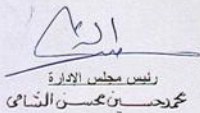 رئيس مجلس الإدارة
محمد حسين محسن الشامي